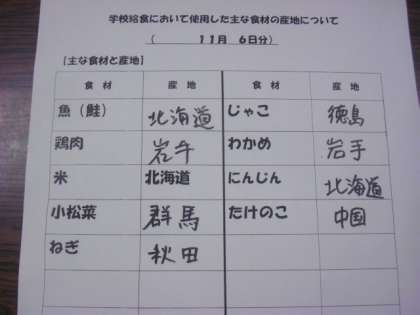 学校給食において使用した主な食材の産地について
（ 11月 6日分）
【主な食材と産地】
食材 産地 食材 産地
魚（鮭） 北海道 じゃこ 徳島
鶏肉 岩手 わかめ 岩手
米 北海道 にんじん 北海道
小松菜 群馬 たけのこ 中国
ねぎ 秋田